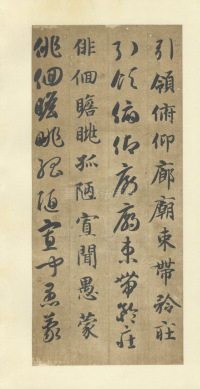 引領俯仰廊廟束帶矜莊
引領俯仰廊廟束帶矜莊
徘徊瞻眺孤陋寡聞愚蒙
徘徊瞻眺孤陋寡聞愚蒙